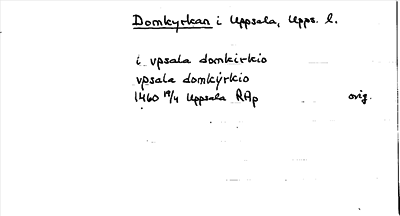 Domkyrkan i Uppsala, Upps. l.
i vpsala domkirkio
vpsala domkÿrkio
1460 19/4 Uppsala RAp orig.